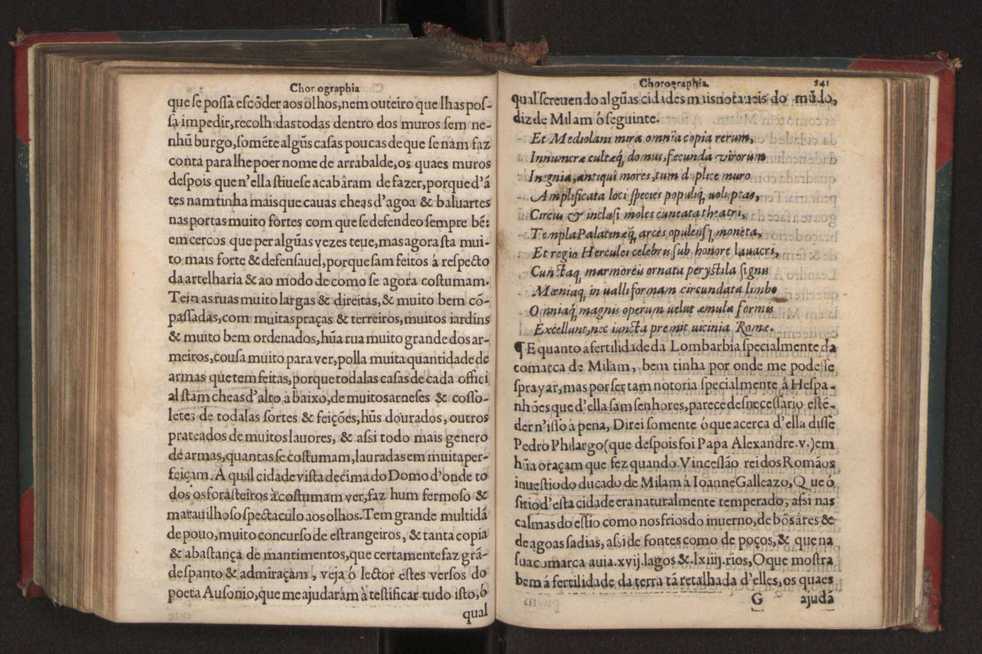 Chorographia
que se possa escõder aos olhos, nem outeiro que lhas pos-
sa impedir, recolhidas todas dentro dos muros sem ne-
nhũ burgo, sométe algũs casas poucas de que se nam faz
conta para lhe poer nome de arrabalde, os quaes muros
despois que n'ella stiuese acabâram de fazer, porque d'â
tes nam tinha mais que cauas cheas d'agoa & baluartes
nas portas muito fortes com que se defendeo sempre bẽ:
em cercos que per algũas vezes teue, mas agora sta mui-
to mais forte & defensauel, porque sam feitos à respecto
da artelharia & ao modo de como se agora costumam.
Tem as ruas muito largas & direitas, & muito bem cõ-
passadas, com muitas praças & terreiros, muitos iardins
& muito bem ordenados, hũa rua muito grande dos ar-
meiros, cousa muito para ver, polla muita quantidade de
armas que tem feitas, porque todalas casas de cada offici
al stam cheas d'alto à baixo, de muitos arneses & cosso-
letes de todalas sortes & feições, hũs dourados, outros
prateados de muitos lauores, & assi todo mais genero
de armas, quantas se costumam, lauradas em muita per-
feiçam. A qual cidade vista de cima do Domo d'onde to
dos os forasteiros a costumam ver, faz hum fermoso &
marauilhoso spectaculo aos olhos. Tem grande multidã
de pouo, muito concurso de estrangeiros, & tanta copia
& abastança de mantimentos, que certamente faz grã-
de spanto & admiraçam, veja ó lector estes versos do
poeta Ausonio, que me ajudaràm à testificar tudo isto, ó
qual
Chorographia. 241
qual screuendo algũas cidades mais notaueis do mũdo,
diz de Milam ó seguinte.
Et Mediolani mira omnia copia rerum,
Innumeræ cultæq; domus, fæcunda virorum
Ingenia, antiqui mores, tum duplice muro
Amplificata loci species populiq; uoluptas,
Circus & inclusi moles cuneata theatri,
Templa Palatinæq; arces opulensq; moneta,
Et regio Herculei celebris sub honore lauacri,
Cunctaq; marmoreis ornata perystila signis
Mæniaq; in ualli formam circundata limbo
Omniaq; magnis operum uelut æmula formis
Excellunt, nec iuncta premit uicinia Romæ.
¶ E quanto a fertilidade da Lombarbia specialmente da
comarca de Milam, bem tinha por onde me podesse
sprayar, mas por ser tam notoria specialmente à Hespa-
nhões que d'ella sam senhores, parece desnecessario esté-
der n'isto à pena, Direi somente ó que acerca d'ella disse
Pedro Philargo (que despois foi Papa Alexandre .v.) em
hũa oraçam que fez quando Vinceslão rei dos Romãos
inuestio do ducado de Milam à Ioanne Galleazo, Que ó
sitio d'esta cidade era naturalmente temperado, assi nas
calmas do estio como nos frios do inuerno, de bõs âres &
de agoas sadias, assi de fontes como de poços, & que na
sua comarca auia .xvij. lagos & .lxiiij. rios, O que mostra
bem â fertilidade da terra tã retalhada d'elles, os quaes
G ajuda